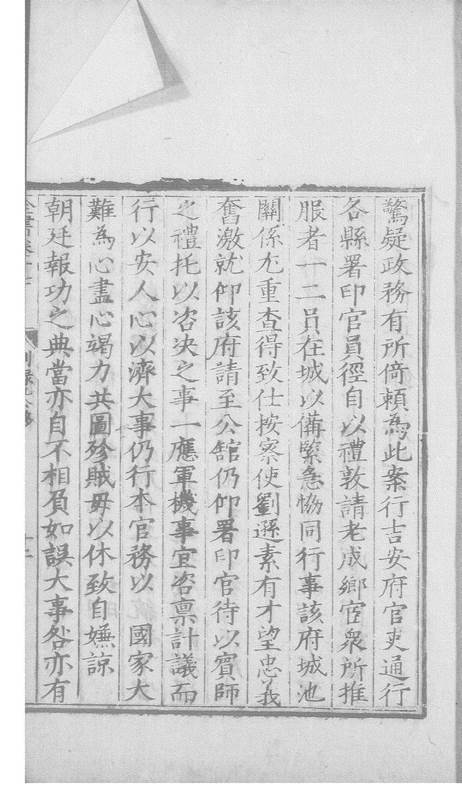 驚疑政務有所倚頼為此案行吉安府官吏通行
各縣署印官員徑自以禮敦請老成鄉宦衆所推
服者一二員在城以備緊急恊同行事該府城池
關係尤重查得致仕按察使劉遜素有才望忠義
奮激就仰該府請至公舘仍仰署印官待以賓師
之禮托以咨决之事一應軍機事宜咨禀計議而
行以安人心以濟大事仍行本官務以　國家大
難為心盡心竭力共圖殄賊毋以休致自嫌諒
朝廷報功之典當亦自不相負如誤大事咎亦有